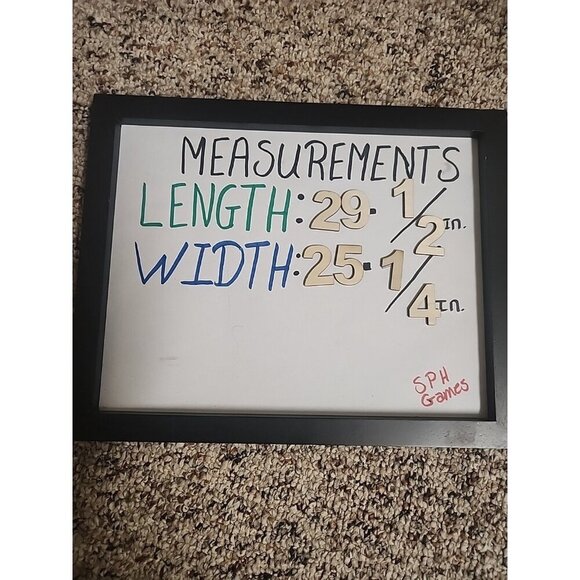 MEASUREMENTS
LENGTH: 29-1/2 IN.
WIDTH: 25-1/4 IN.
SPH
Games